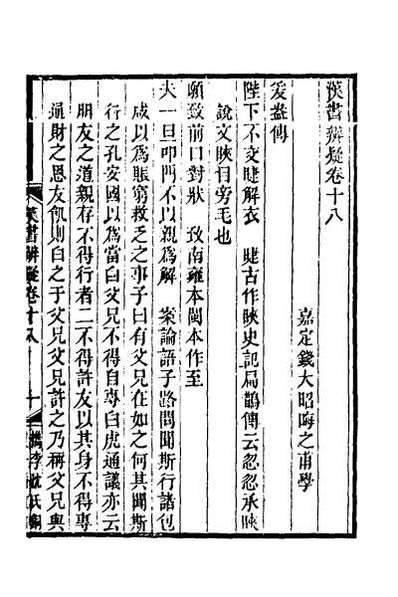 漢書辨疑卷十八
嘉定錢大昭晦之甫學
爰盎傳
陛下不交睫解衣　睫古作䀹史記扁鵲傳云忽忽承䀹
說文䀹目旁毛也
願致前口對狀　致南雍本閩本作至
夫一旦叩門不以親爲解　案論語子路問聞斯行諸包
咸以爲賑窮救乏之事子曰有父兄在如之何其聞斯
行之孔安國以爲當白父兄不得自專白虎通議亦云
朋友之道親存不得行者二不得許友以其身不得專
通財之恩友飢則白之于父兄父兄許之乃稱父兄與
漢書辨疑卷十八
一